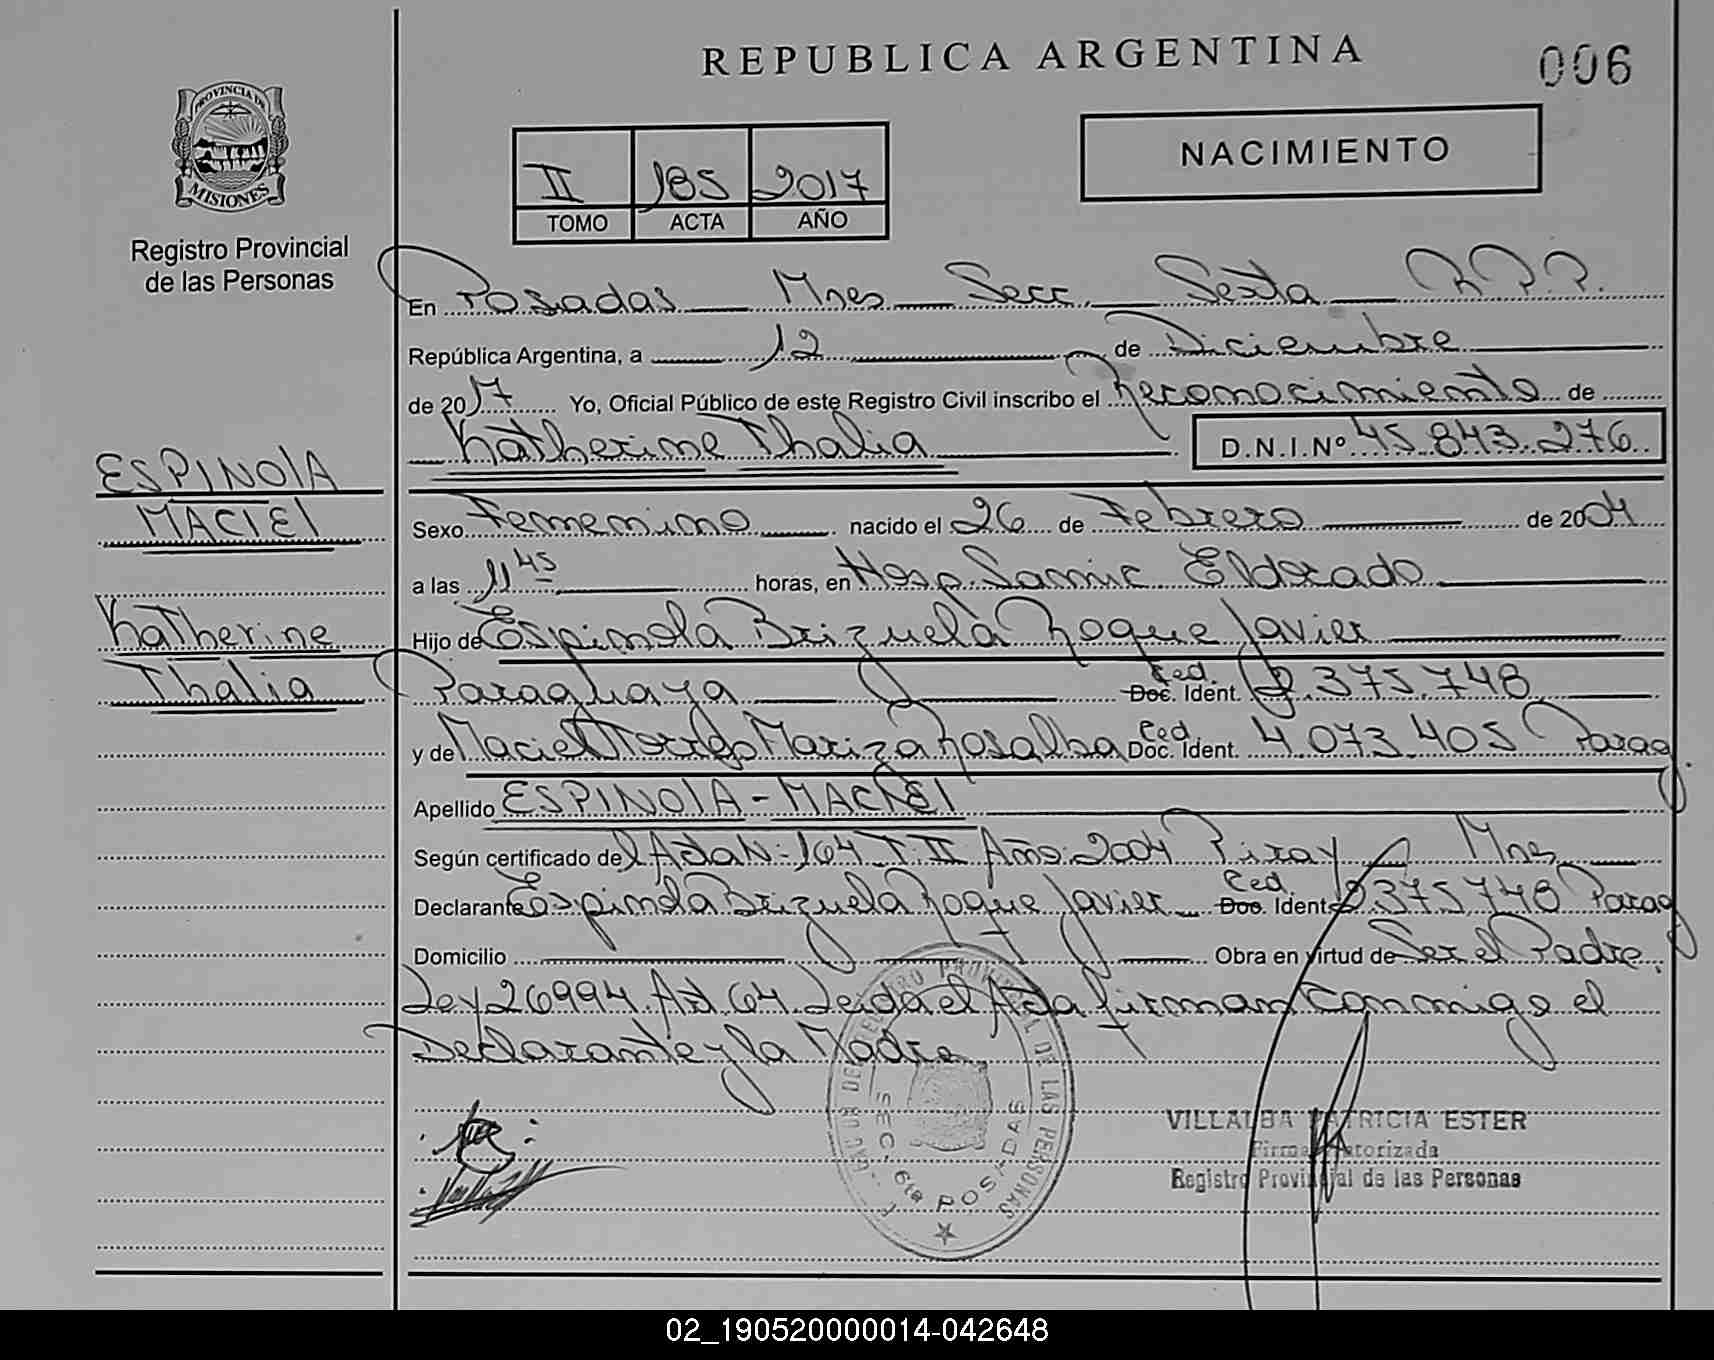 REPUBLICA ARGENTINA
006
PROVINCIA DE
MISIONES
Registro Provincial
de las Personas
NACIMIENTO
II 185 2017
TOMO ACTA AÑO
En Posadas Mnes Secc. Sexta R.P.P.
República Argentina, a 12 de Diciembre
de 2017 Yo, Oficial Público de este Registro Civil inscribo el Reconocimiento de
Katherine Thalia D.N.I.Nº 45.843.276
ESPINOlA
MACIEl
Katherine
Thalia
Sexo Femenino nacido el 26 de Febrero de 2004
a las 11 45 horas, en Hosp. Samic Eldorado
Hijo de Espinola Brizuela Roque Javier
Paraguaya Ced. Doc. Ident. 2.375.748
y de Maciel Torrgo Mariza Rosalba Ced. Doc. Ident. 4.073.405 Parag.
Apellido ESPINOlA - MACIEl
Según certificado del Acta N: 164 T. II Año: 2004 Piray Mnes
Declarante Espinola Brizuela Roque Javier Ced. Doc. Ident. 2375748 Parag
Domicilio Obra en virtud de Ser el Padre,
Ley 26994. Art. 64. Leida el Acta firman conmigo el
Declarante y la Madre.
REGISTRO PROVINCIAL DE LAS PERSONAS
SEC. 6ta POSADAS
VILLALBA PATRICIA ESTER
Firma Autorizada
Registro Provincial de las Personas
02_190520000014-042648